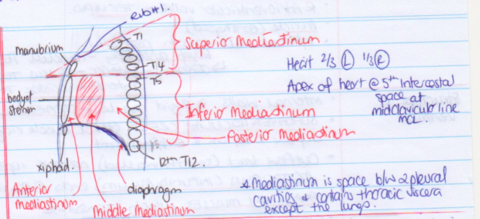 rib #1.
T1
manubrium
Superior Mediastinum
T4
T5
Heart 2/3 L 1/3 R
Apex of heart @ 5th intercostal
space at
midclavicular line
MCL.
body of
sternum
Inferior Mediastinum
Posterior Mediastinum
xiphoid.
T12.
diaphragm
Anterior
mediastinum
Middle Mediastinum
* Mediastinum is space b/w 2 pleural
cavities & contains thoracic viscera
except the lungs.